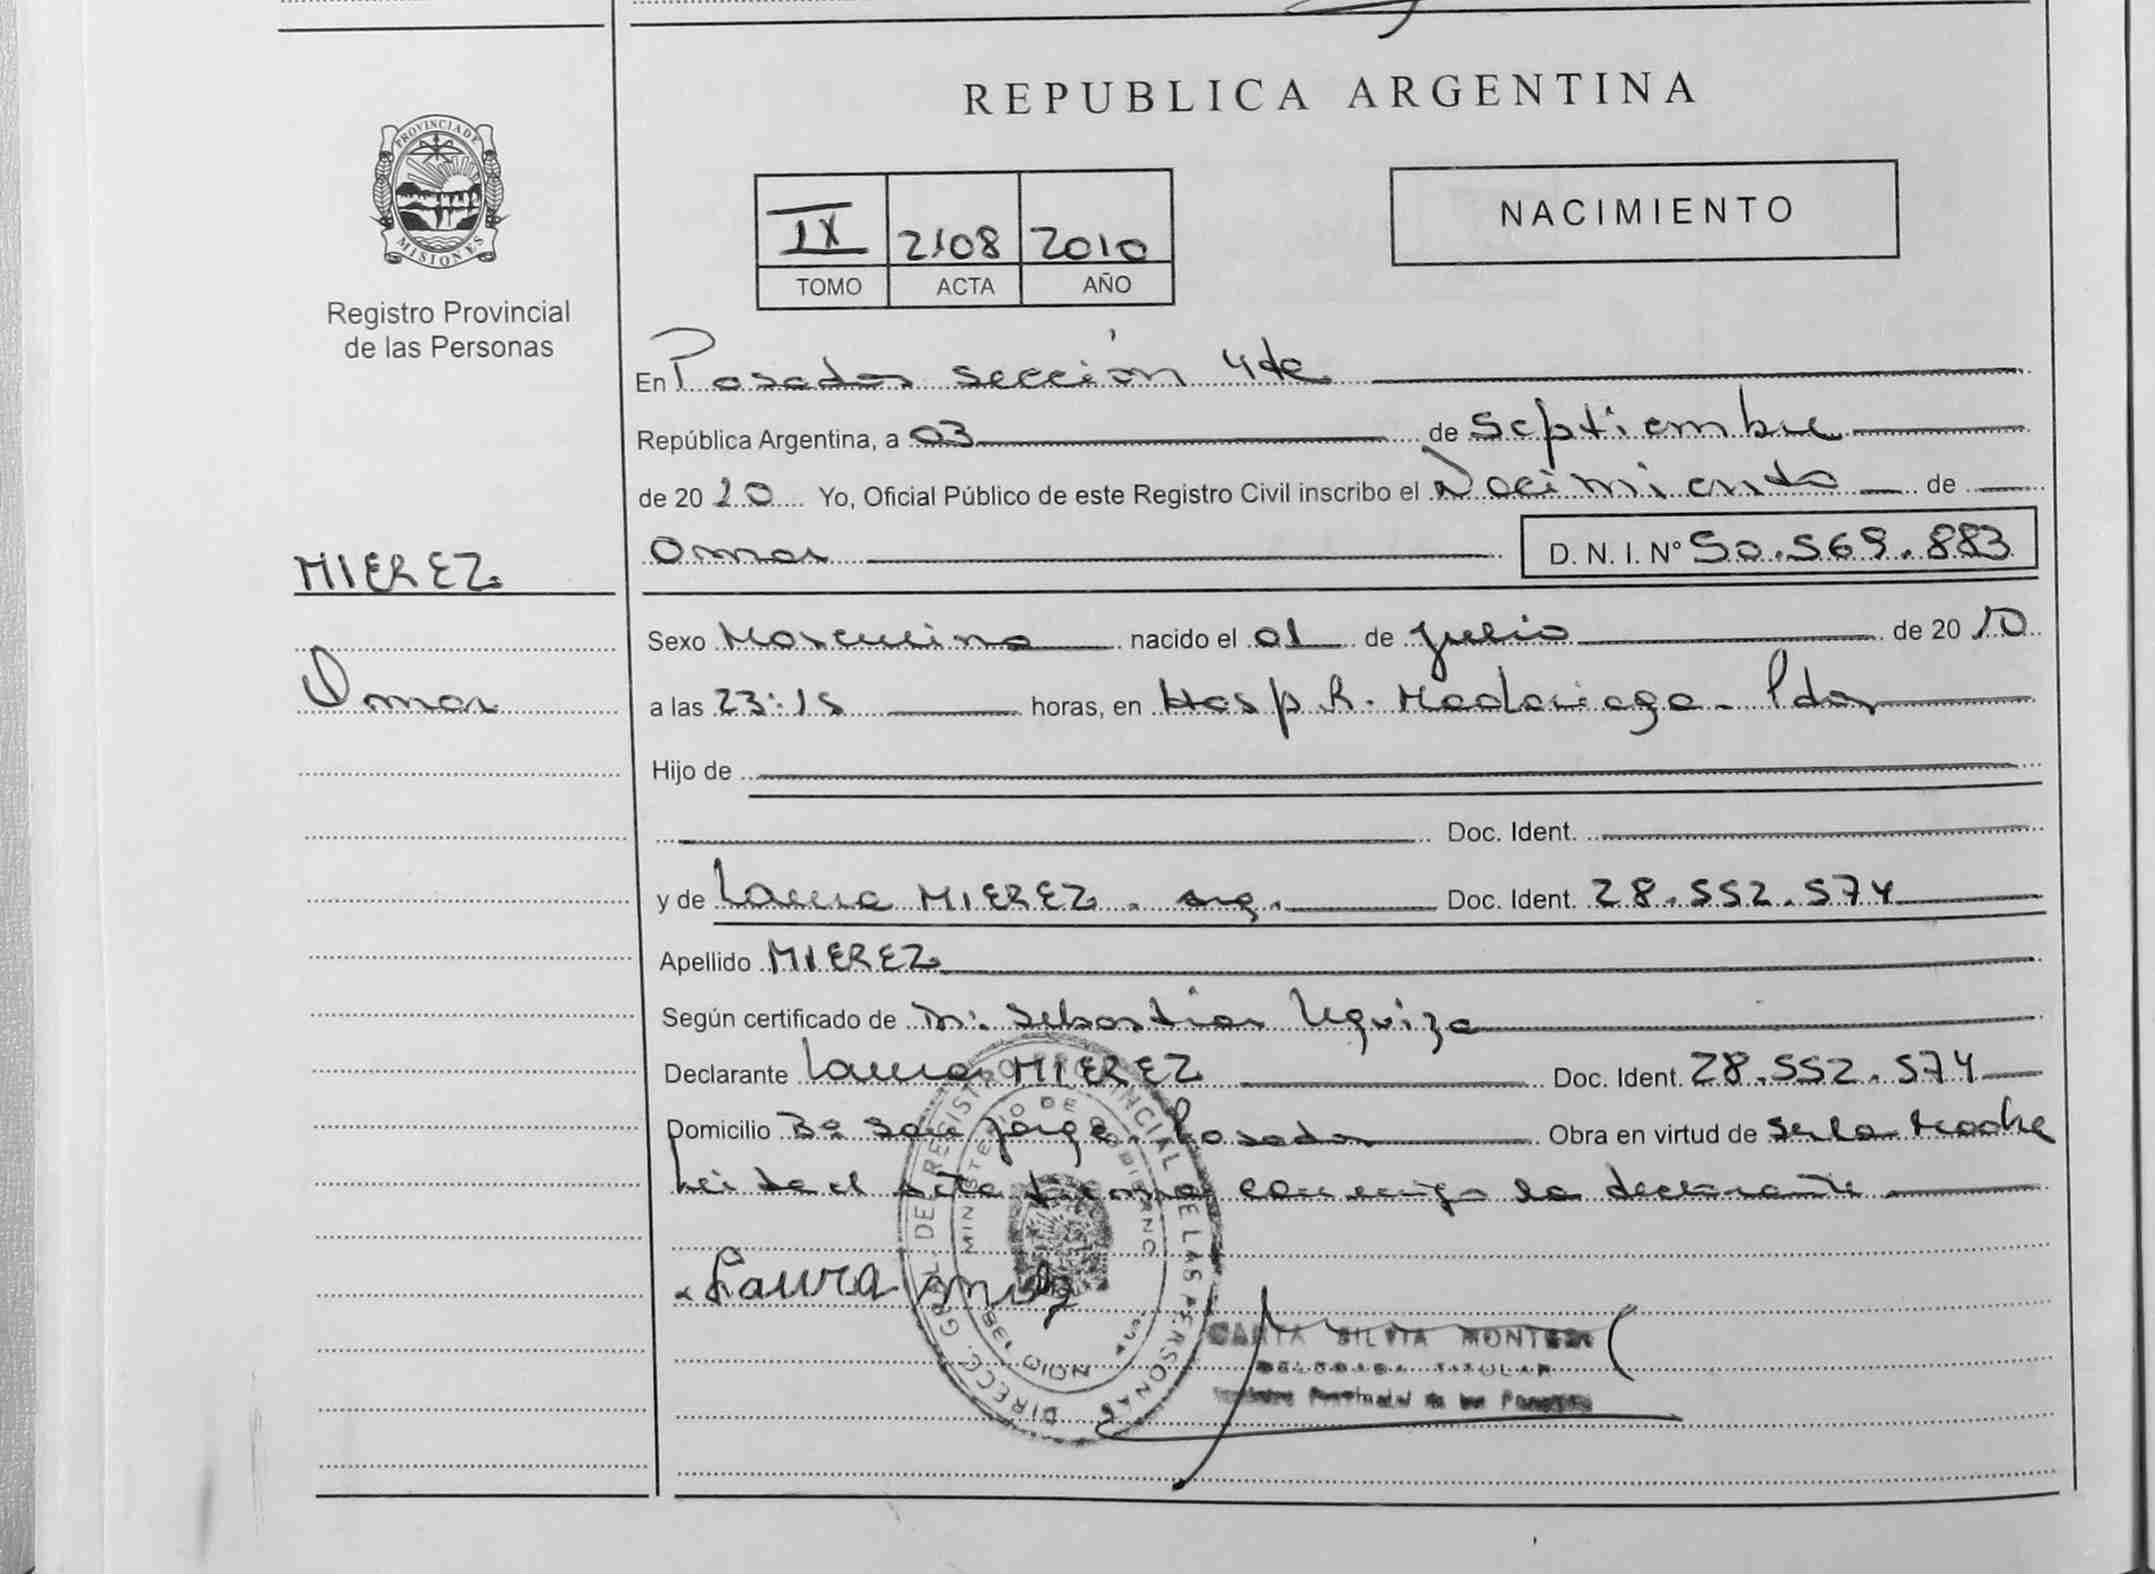 REPUBLICA ARGENTINA
PROVINCIA DE
MISIONES
Registro Provincial
de las Personas
NACIMIENTO
IX 2108 2010
TOMO ACTA AÑO
En Posadas sección 4ta
República Argentina, a 03 de Septiembre
de 2010 Yo, Oficial Público de este Registro Civil inscribo el Nacimiento de
Omar D. N. I. N° 50.569.883
MIEREZ
Omar
Sexo Masculino nacido el 01 de julio de 2010
a las 23:15 horas, en Hosp. R. Madariaga - Pdas
Hijo de
Doc. Ident.
y de Laura MIEREZ. arg. Doc. Ident. 28.552.574
Apellido MIEREZ
Según certificado de Dr. Sebastian Uquiza
Declarante Laura MIEREZ Doc. Ident. 28.552.574
Domicilio Bº San Jorge. Posadas Obra en virtud de ser la Madre
Leida el acta firma conmigo la declarante
Laura
DIRECC. GRAL. DE REGISTRO PROVINCIAL DE LAS PERSONAS
MINISTERIO DE GOBIERNO
SILVIA MONTES
DELEGADA TITULAR
Registro Provincial de las Personas